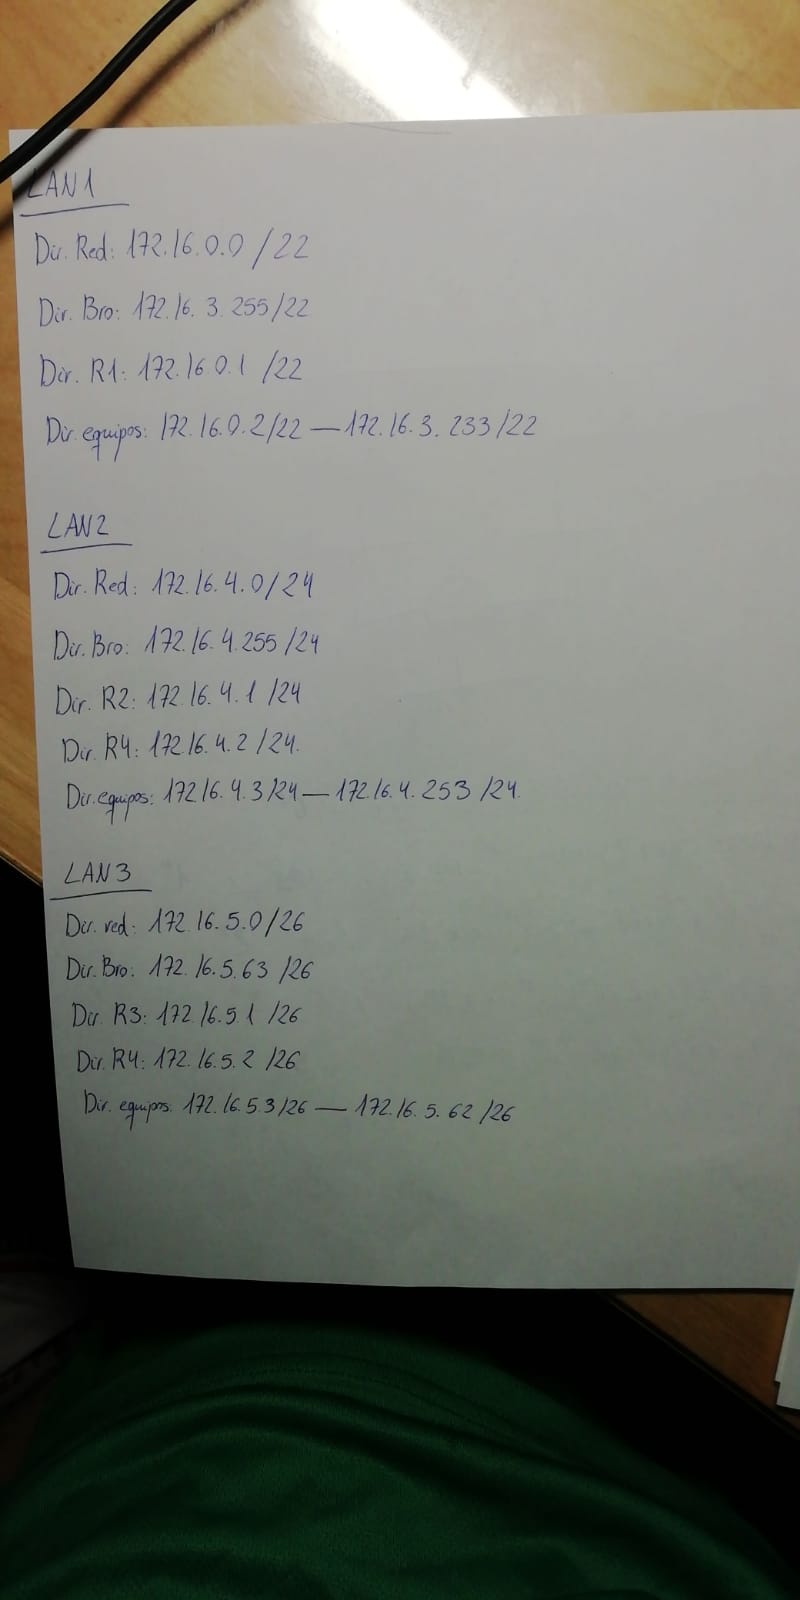 LAN1
Dir. Red: 172.16.0.0 /22
Dir. Bro: 172.16.3.255/22
Dir. R1: 172.16 0.1 /22
Dir. equipos: 172.16.0.2/22 — 172.16.3.233/22
LAN2
Dir. Red: 172.16.4.0/24
Dir. Bro: 172.16.4.255/24
Dir. R2: 172.16.4.1 /24
Dir. R4: 172.16.4.2/24.
Dir. equipos: 172.16.4.3/24 — 172.16.4.253/24.
LAN3
Dir. red: 172.16.5.0/26
Dir. Bro: 172.16.5.63 /26
Dir. R3: 172.16.5 1 /26
Dir. R4: 172.16.5.2 /26
Dir. equipos: 172.16.5.3/26 — 172.16.5.62/26